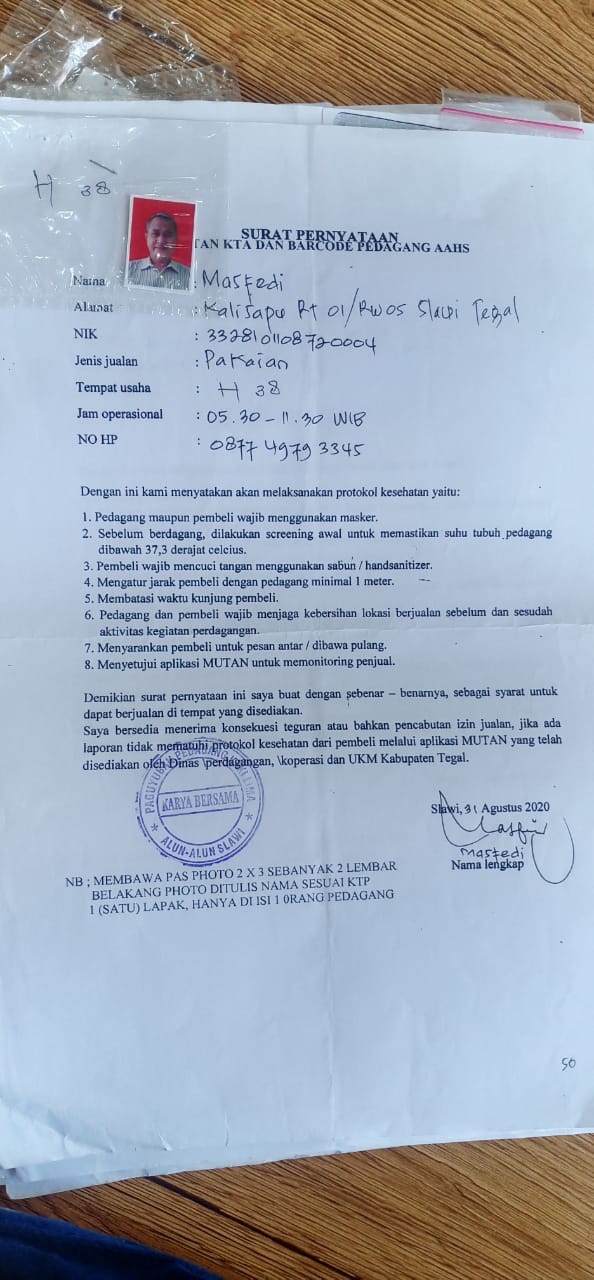 H 38
SURAT PERNYATAAN
TAN KTA DAN BARCODE PEDAGANG AAHS
Nama : Masfedi
Alamat : Kalisapu Rt 01/RW05 Slawi Tegal
NIK : 3328101108720004
Jenis jualan : Pakaian
Tempat usaha : H 38
Jam operasional : 05.30 - 11.30 WIB
NO HP : 0877 4979 3345
Dengan ini kami menyatakan akan melaksanakan protokol kesehatan yaitu:
1. Pedagang maupun pembeli wajib menggunakan masker.
2. Sebelum berdagang, dilakukan screening awal untuk memastikan suhu tubuh pedagang
dibawah 37,3 derajat celcius.
3. Pembeli wajib mencuci tangan menggunakan sabun / handsanitizer.
4. Mengatur jarak pembeli dengan pedagang minimal 1 meter.
5. Membatasi waktu kunjung pembeli.
6. Pedagang dan pembeli wajib menjaga kebersihan lokasi berjualan sebelum dan sesudah
aktivitas kegiatan perdagangan.
7. Menyarankan pembeli untuk pesan antar / dibawa pulang.
8. Menyetujui aplikasi MUTAN untuk memonitoring penjual.
Demikian surat pernyataan ini saya buat dengan sebenar – benarnya, sebagai syarat untuk
dapat berjualan di tempat yang disediakan.
Saya bersedia menerima konsekuesi teguran atau bahkan pencabutan izin jualan, jika ada
laporan tidak mematuhi protokol kesehatan dari pembeli melalui aplikasi MUTAN yang telah
disediakan oleh Dinas \perdagangan, \koperasi dan UKM Kabupaten Tegal.
PAGUYUBAN PEDAGANG KAKI LIMA
KARYA BERSAMA
* ALUN-ALUN SLAWI *
Slawi, 31 Agustus 2020
Masfedi
Nama lengkap
NB ; MEMBAWA PAS PHOTO 2 X 3 SEBANYAK 2 LEMBAR
BELAKANG PHOTO DITULIS NAMA SESUAI KTP
1 (SATU) LAPAK, HANYA DI ISI 1 0RANG PEDAGANG
50